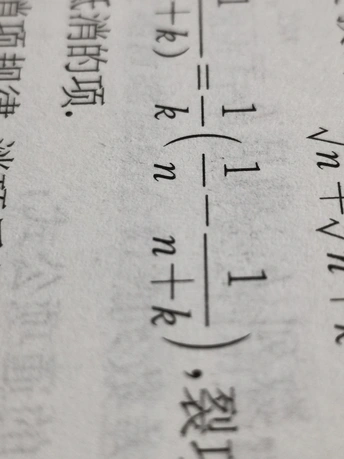 √n+√n+k
+k)=1/k(1/n-1/(n+k)),裂
消的项.
项规律